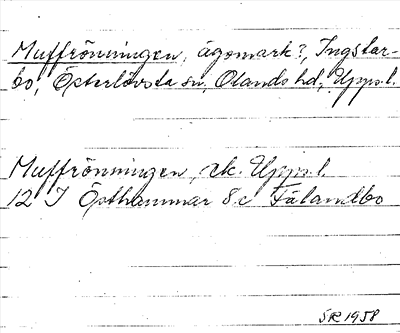 Muffrönningen, ägomark?, Ingstar-
bo, Österlövsta sn, Olands hd, Upps.l.
Muffrönningen, ek. Upps.l.
12 I Östhammar 8 c Fälandbo
SR 1958